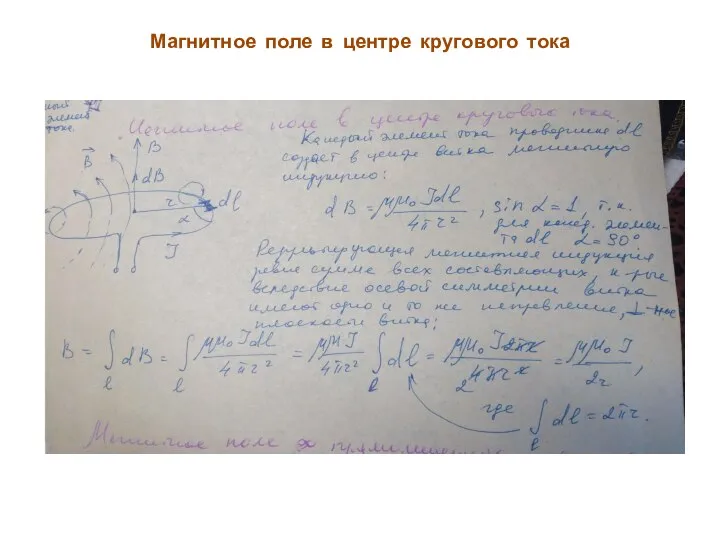 Магнитное поле в центре кругового тока
ный
элемент
тока
Магнитное поле в центре кругового тока.
Каждый элемент тока проводника dl
создает в центре витка магнитную
индукцию:
B
B
dB
r
dl
α
I
dB = μμ₀Idl / 4πr² , sin α = 1, т.к.
для кажд. элемен-
та dl α = 90°
Результирующая магнитная индукция
равна сумме всех составляющих, к-рые
вследствие осевой симметрии витка
имеют одно и то же направление, ⊥-ное
плоскости витка:
B = ∫l dB = ∫l μμ₀Idl / 4πr² = μμI / 4πr² ∫l dl = μμ₀I2πr / 24πr² = μμ₀I / 2r ,
где ∫l dl = 2πr.
Магнитное поле